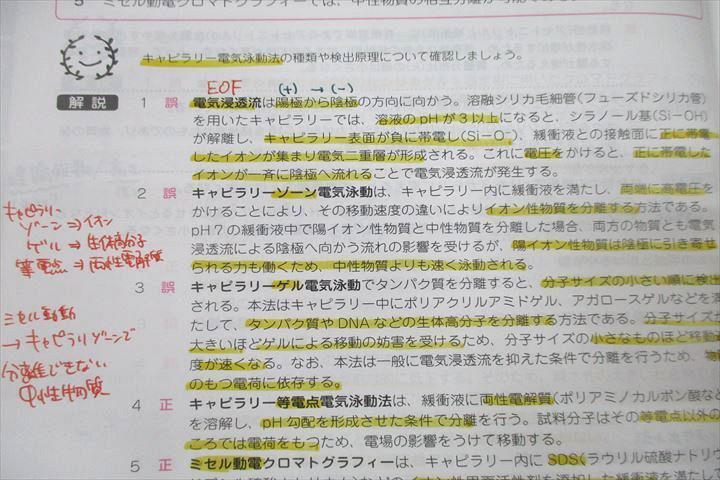 5 ミセル動電クロマトグラフィーでは、中性物質の相互分離が可能で
キャピラリー電気泳動法の種類や検出原理について確認しましょう。
EOF (+) → (-)
解説
1 誤 電気浸透流は陽極から陰極の方向に向かう。溶融シリカ毛細管(フューズドシリカ管)
を用いたキャピラリーでは、溶液のpHが3以上になると、シラノール基(Si-OH)
が解離し、キャピラリー表面が負に帯電し(Si-O⁻)、緩衝液との接触面に正に帯電
したイオンが集まり電気二重層が形成される。これに電圧をかけると、正に帯電した
イオンが一斉に陰極へ流れることで電気浸透流が発生する。
2 誤 キャピラリーゾーン電気泳動は、キャピラリー内に緩衝液を満たし、両端に高電圧を
かけることにより、その移動速度の違いによりイオン性物質を分離する方法である。
pH7の緩衝液中で陽イオン性物質と中性物質を分離した場合、両方の物質とも電気
浸透流による陰極へ向かう流れの影響を受けるが、陽イオン性物質は陰極に引き寄せ
られる力も働くため、中性物質よりも速く泳動される。
3 誤 キャピラリーゲル電気泳動でタンパク質を分離すると、分子サイズの小さい順に検出
される。本法はキャピラリー中にポリアクリルアミドゲル、アガロースゲルなどを
たして、タンパク質やDNAなどの生体高分子を分離する方法である。分子サイズが
大きいほどゲルによる移動の妨害を受けるため、分子サイズの小さなものほど移動
度が速くなる。なお、本法は一般に電気浸透流を抑えた条件で分離を行うため、物
のもつ電荷に依存する。
4 正 キャピラリー等電点電気泳動法は、緩衝液に両性電解質(ポリアミノカルボン酸など
を溶解し、pH勾配を形成させた条件で分離を行う。試料分子はその等電点以外の
ころでは電荷をもつため、電場の影響をうけて移動する。
5 正 ミセル動電クロマトグラフィーは、キャピラリー内にSDS(ラウリル硫酸ナトリウ
キャピラリ
ゾーン⇒イオン
ゲル⇒生体高分子
等電点⇒両性電解質
ミセル動動
→キャピラリゾーンで
分離できない
中性物質